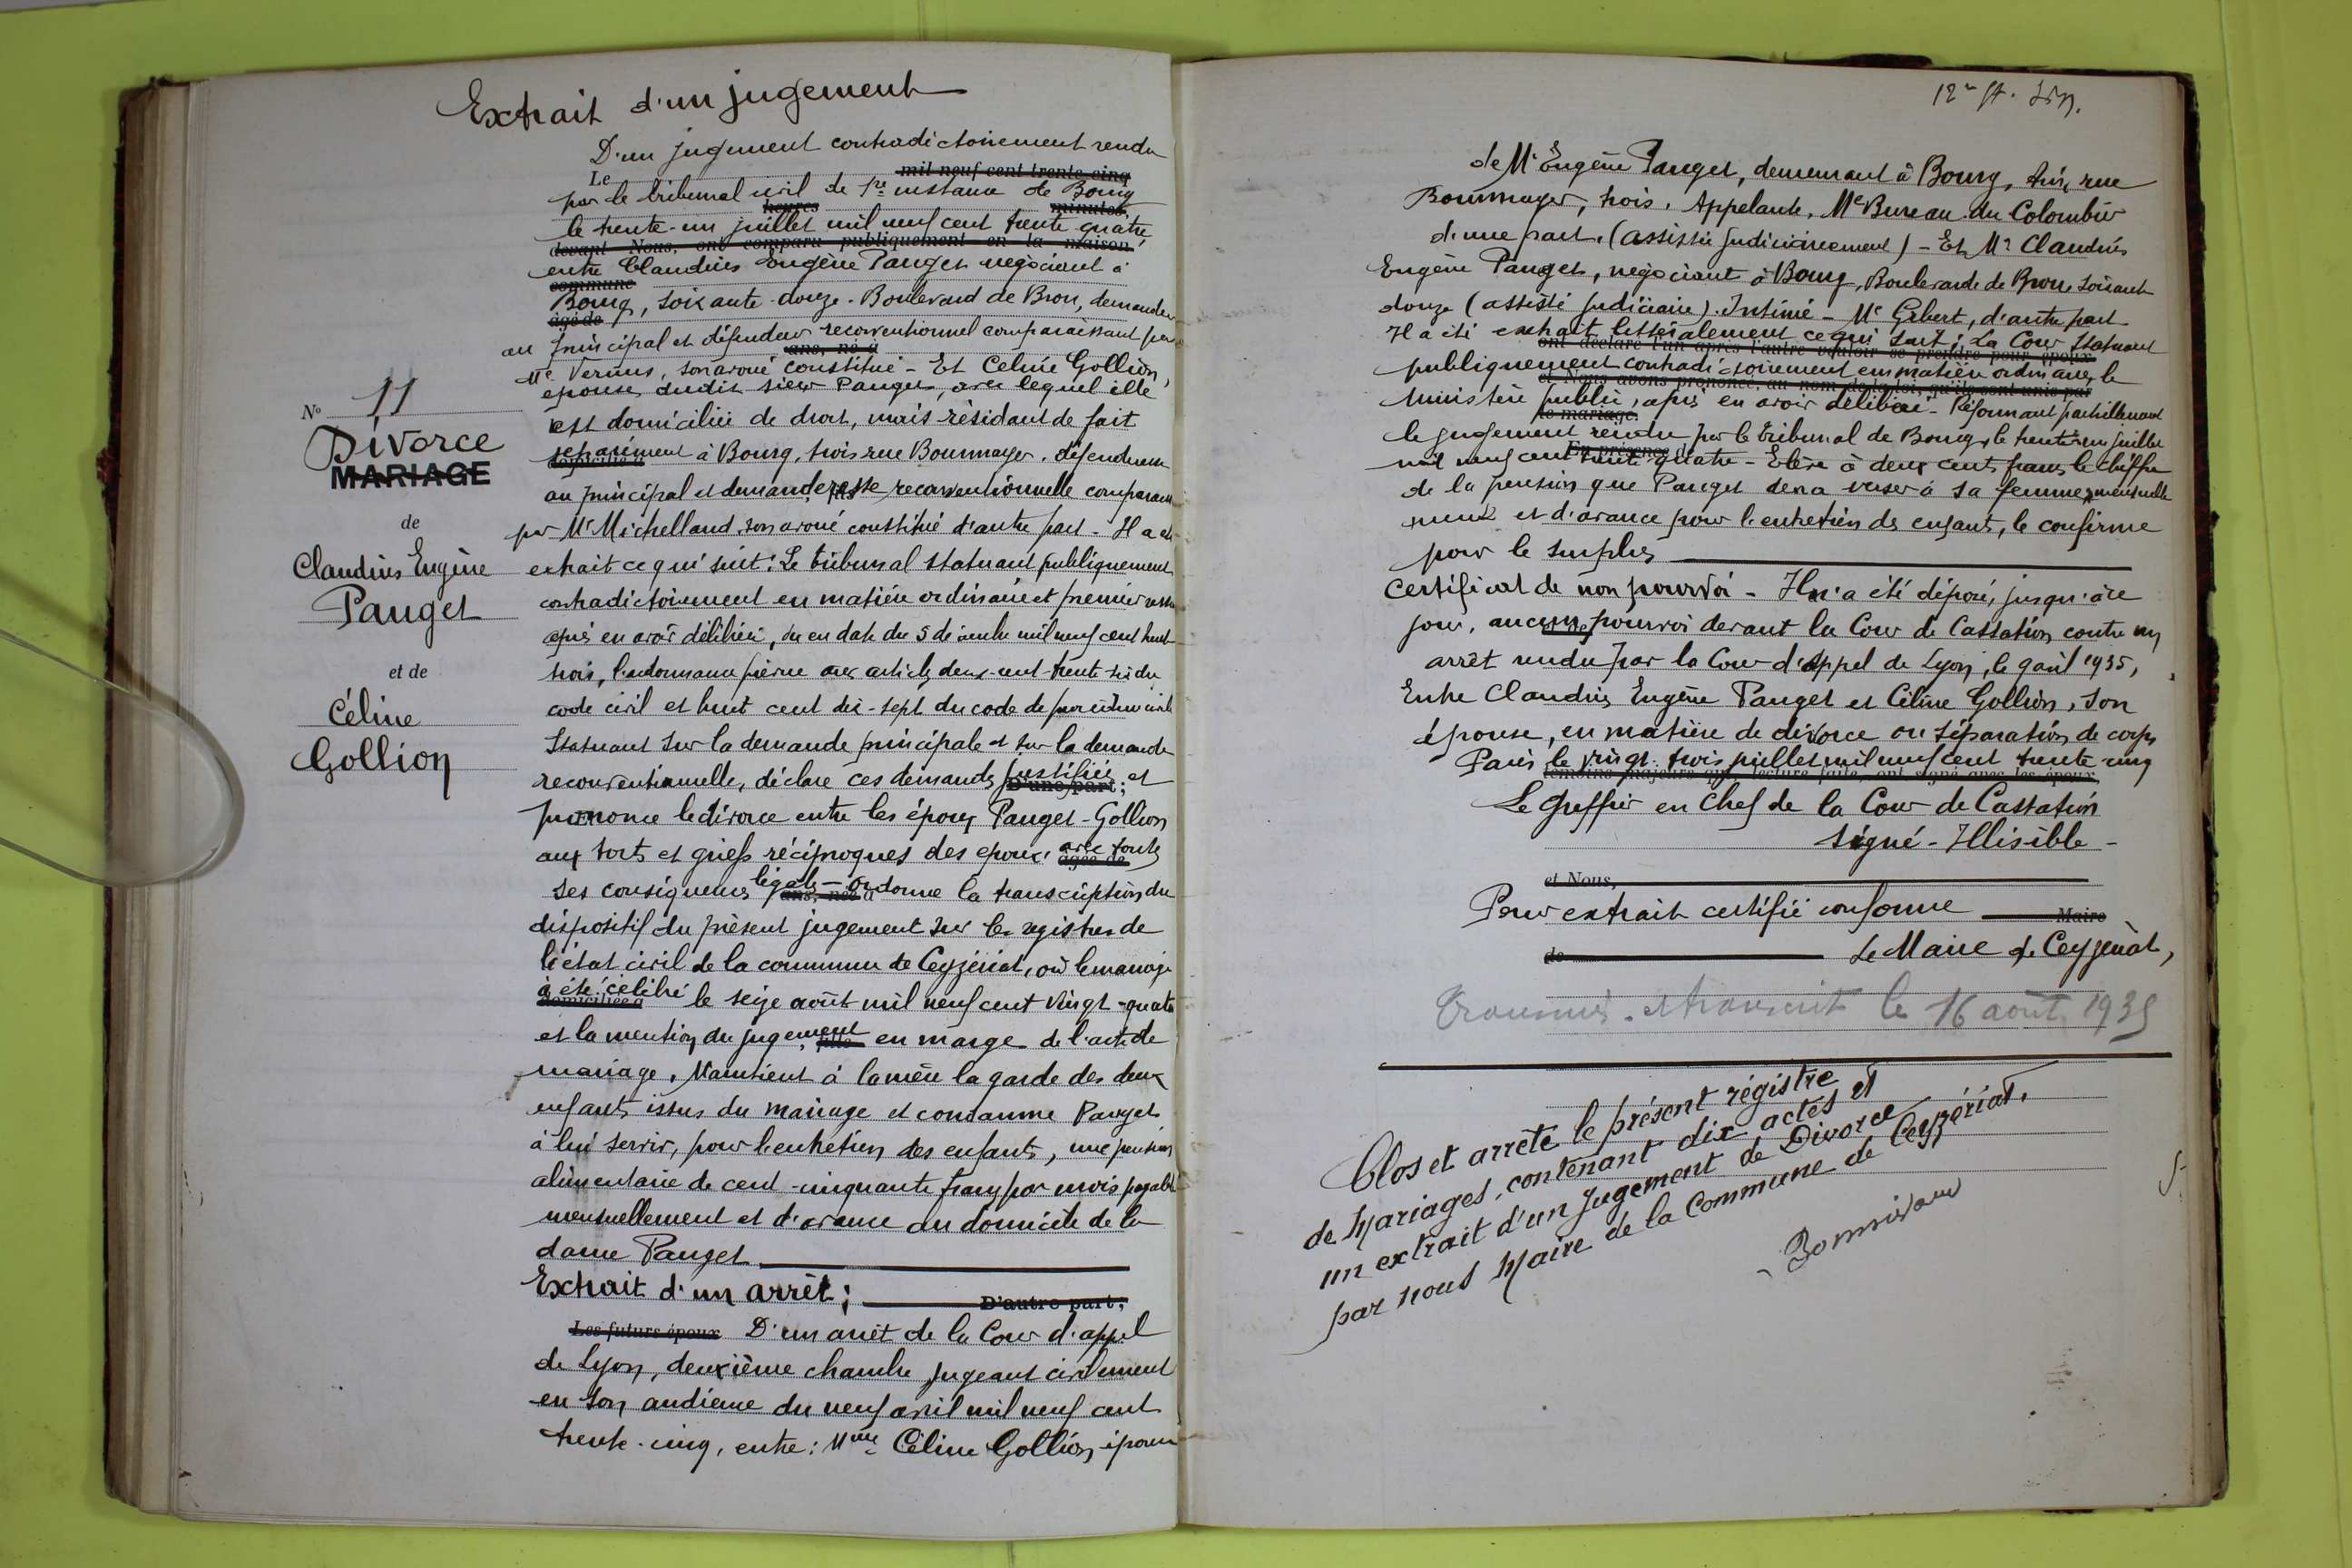 Extrait d'un jugement
D'un jugement contradictoirement rendu
Le mil neuf cent trente-cinq
par le tribunal civil de 1re instance de Bourg
heures minutes,
le trente-un juillet mil neuf cent trente quatre,
devant Nous, ont comparu publiquement en la maison
entre Claudius Eugène Pauget négociant à
commune
Bourg, soixante-douze. Boulevard de Brou, demandeur
âgé de
au principal et défendeur reconventionnel comparaissant par
ans, né à
Me Vernus, son avoué constitué - Et Céline Gollion,
épouse dudit sieur Pauget, avec lequel elle
est domiciliée de droit, mais résidant de fait
séparément à Bourg, trois rue Bourmayer. défenderesse
domicilié à
au principal et demanderesse reconventionnelle comparant
par Me Michelland son avoué constitué d'autre part - Il a été
extrait ce qui suit: Le tribunal statuant publiquement
contradictoirement en matière ordinaire et premier ressort
après en avoir délibéré, vu en date du 5 décembre mil neuf cent trente
trois, l'ordonnance prévue aux articles deux-cent-trente-six du
code civil et huit cent dix-sept du code de procédure civile
Statuant sur la demande principale et sur la demande
reconventionnelle, déclare ces demandes justifiées et
D'une part;
prononce le divorce entre les époux Pauget-Gollion
aux torts et griefs réciproques des epoux, avec toutes
âgée de
ses conséquences légales - Ordonne la transcription du
ans, née à
dispositif du présent jugement sur les registres de
l'état civil de la commune de Ceyzériat, où le mariage
a été célébré le seize août mil neuf cent vingt-quatre
domiciliée à
et la mention du jugement en marge de l'acte de
fille
mariage. Maintient à la mère la garde des deux
enfants issus du mariage et condamne Pauget
à lui servir, pour l'entretien des enfants, une pension
alimentaire de cent-cinquante francs par mois payable
mensuellement et d'avance au domicile de la
dame Pauget
Extrait d'un arrêt; D'autre part;
Les futurs époux D'un arrêt de la Cour d'appel
de Lyon, deuxième chambre jugeant civilement
en son audience du neuf avril mil neuf cent
trente-cinq, entre: Mme Céline Gollion, épouse
No 11
Divorce
MARIAGE
de
Claudius Eugène
Pauget
et de
Céline
Gollion
de Mr Eugène Pauget, demeurant à Bourg, rue
Bourmayer, trois. Appelante. Me Bureau du Colombier
d'une part. (Assistée judiciairement) - Et Mr Claudius
Eugène Pauget, négociant à Bourg, Boulevard de Brou soixante
douze (assisté judiciaire). Intimé - Me Gebert, d'autre part
Il a été extrait littéralement ce qui suit: La Cour Statuant
ont déclaré l'un après l'autre vouloir se prendre pour époux
publiquement contradictoirement en matière ordinaire, le
et Nous avons prononcé, au nom de la loi, qu'ils sont unis par
Ministère public, après en avoir délibéré - Réformant partiellement
le mariage.
le jugement rendu par le tribunal de Bourg, le trente un juillet
En présence de
mil neuf cent trente quatre - Elève à deux cents francs le chiffre
de la pension que Pauget devra verser à sa femme, mensuelle
ment et d'avance pour l'entretien des enfants, le confirme
pour le surplus
Certificat de non pourvoi - Il n'a été déposé, jusqu'à ce
jour, aucun pourvoi devant la Cour de Cassation contre un
arrêt rendu par la Cour d'Appel de Lyon, le 9 avril 1935,
Entre Claudius Eugène Pauget et Céline Gollion, son
épouse, en matière de divorce ou séparation de corps
Paris le vingt-trois juillet mil neuf cent trente cinq
témoins majeurs qui, lecture faite, ont signé avec les époux
Le Greffier en Chef de la Cour de Cassation
signé - Illisible -
et Nous,
Pour extrait certifié conforme Maire
de Le Maire de Ceyzériat,
transcrit le 16 août 1935
Clos et arrêté le présent régistre
de Mariages, contenant dix actes et
un extrait d'un Jugement de Divorce
par nous Maire de la Commune de Ceyzériat.